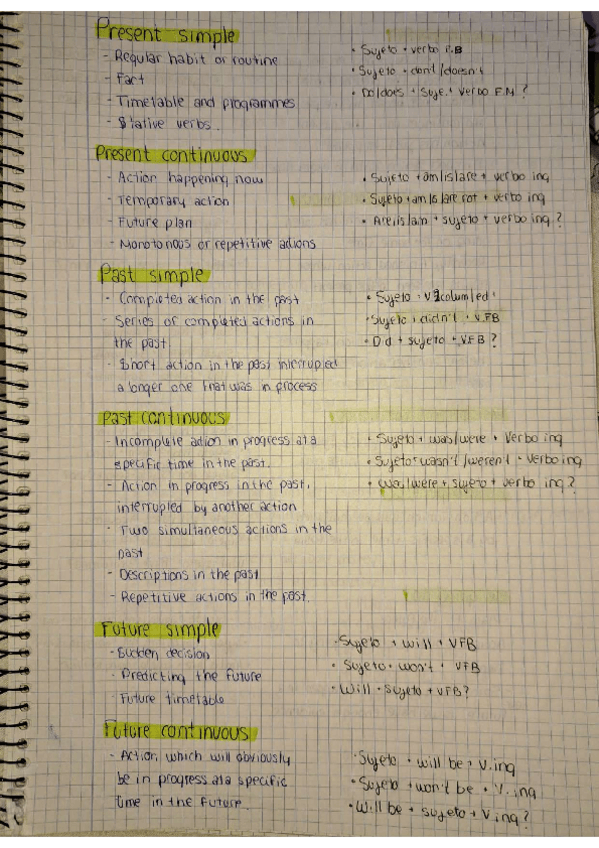 Present simple
- Regular habit or routine
- Fact
- Timetable and programmes
- Stative verbs.
• Sujeto + verbo F.B
• Sujeto + don't/doesn't
• Do/does + Suje.+ verbo F.M ?
Present continuous
- Action happening now
- Temporary action
- Future plan
- Monotonous or repetitive actions
• Sujeto + am/is/are + verbo ing
• Sujeto + am/is/are not + verbo ing
• Are/is/am + sujeto + verbo ing ?
Past simple
- Completed action in the past
- Series of completed actions in
the past
- Short action in the past interrupted
a longer one that was in process
• Sujeto + v2colum/ed
• Sujeto + didn't + V.FB
• Did + sujeto + V.FB ?
Past continuous
- Incomplete action in progress at a
specific time in the past.
- Action in progress in the past,
interrupted by another action
- Two simultaneous actions in the
past
- Descriptions in the past
- Repetitive actions in the past.
• Sujeto + was/were + verbo ing
• Sujeto + wasn't/weren't + verbo ing
• Was/were + sujeto + verbo ing ?
Future simple
- Sudden decision
- Predicting the future
- Future timetable
• Sujeto + will + VFB
• Sujeto + won't + VFB
• Will + Sujeto + VFB?
Future continuous
- Action, which will obviously
be in progress at a specific
time in the future.
• Sujeto + will be + V.ing
• Sujeto + won't be + V.ing
• Will be + sujeto + V.ing ?